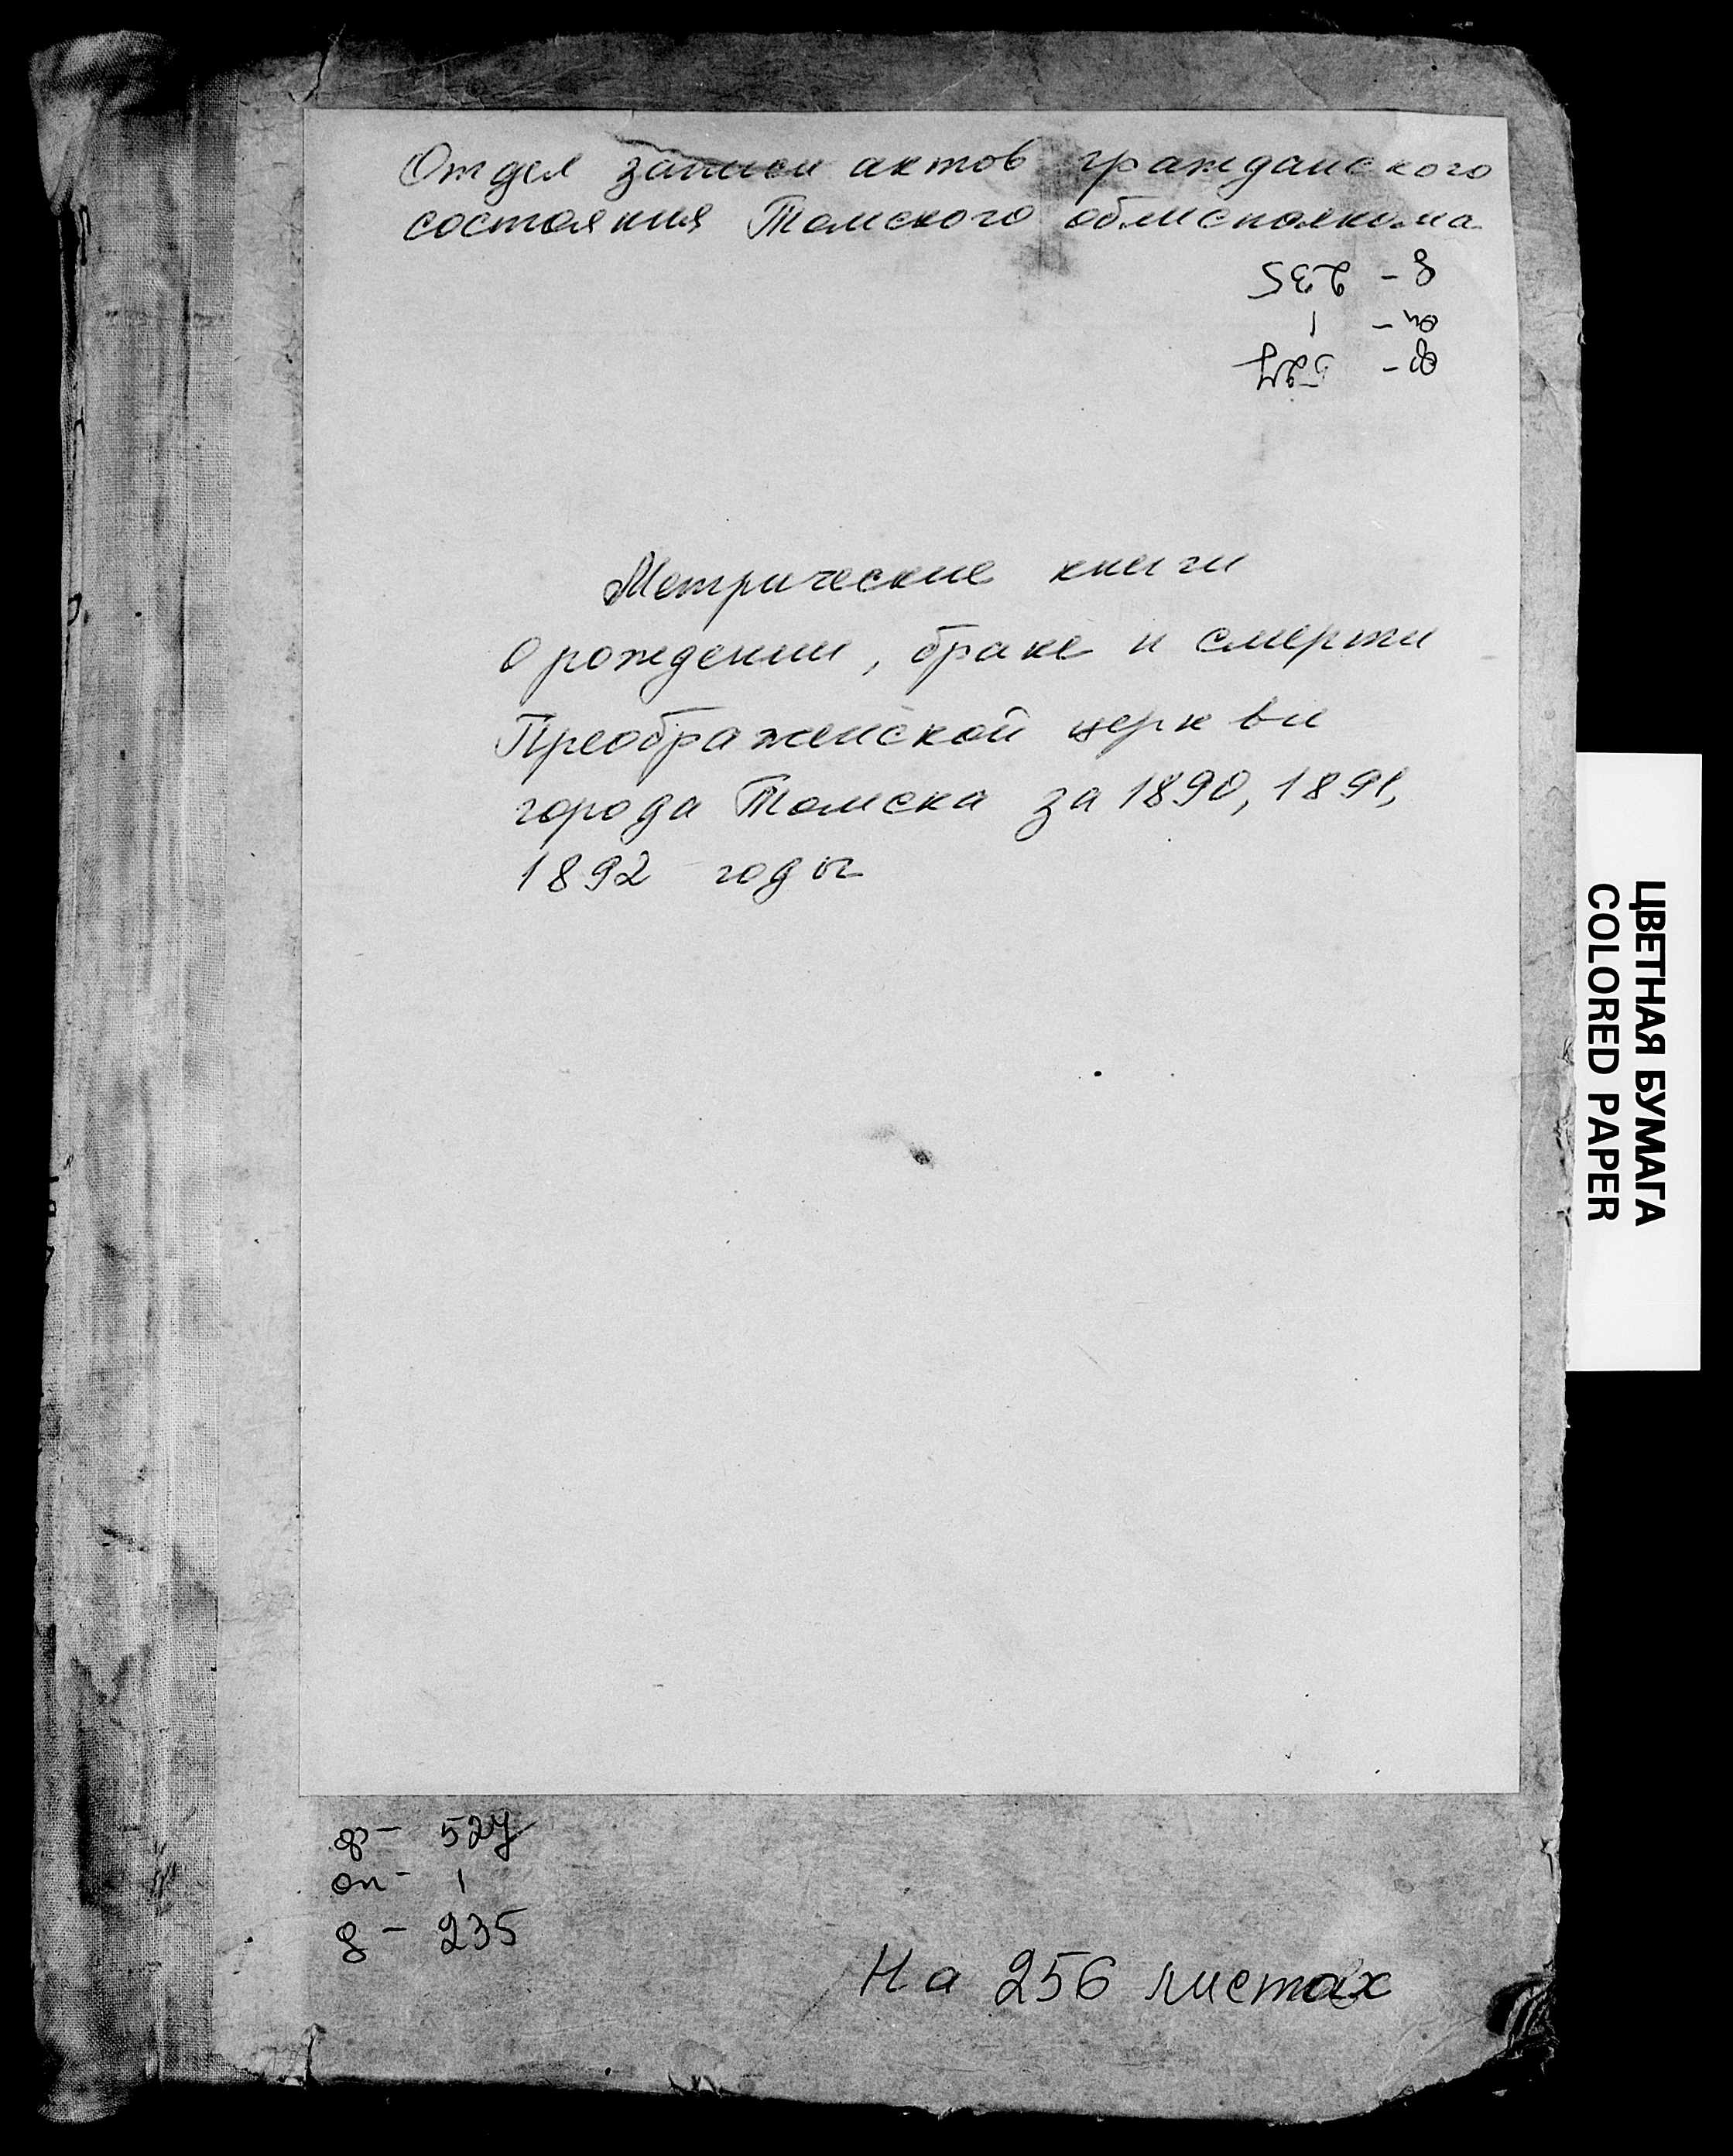 Отдел записи актов гражданского
состояния Томского облисполкома
ф- 527
оп- 1
д- 235
Метрические книги
о рождении, браке и смерти
Преображенской церкви
города Томска за 1890, 1891,
1892 годы
ЦВЕТНАЯ БУМАГА
COLORED PAPER
ф- 527
оп- 1
д- 235
На 256 листах